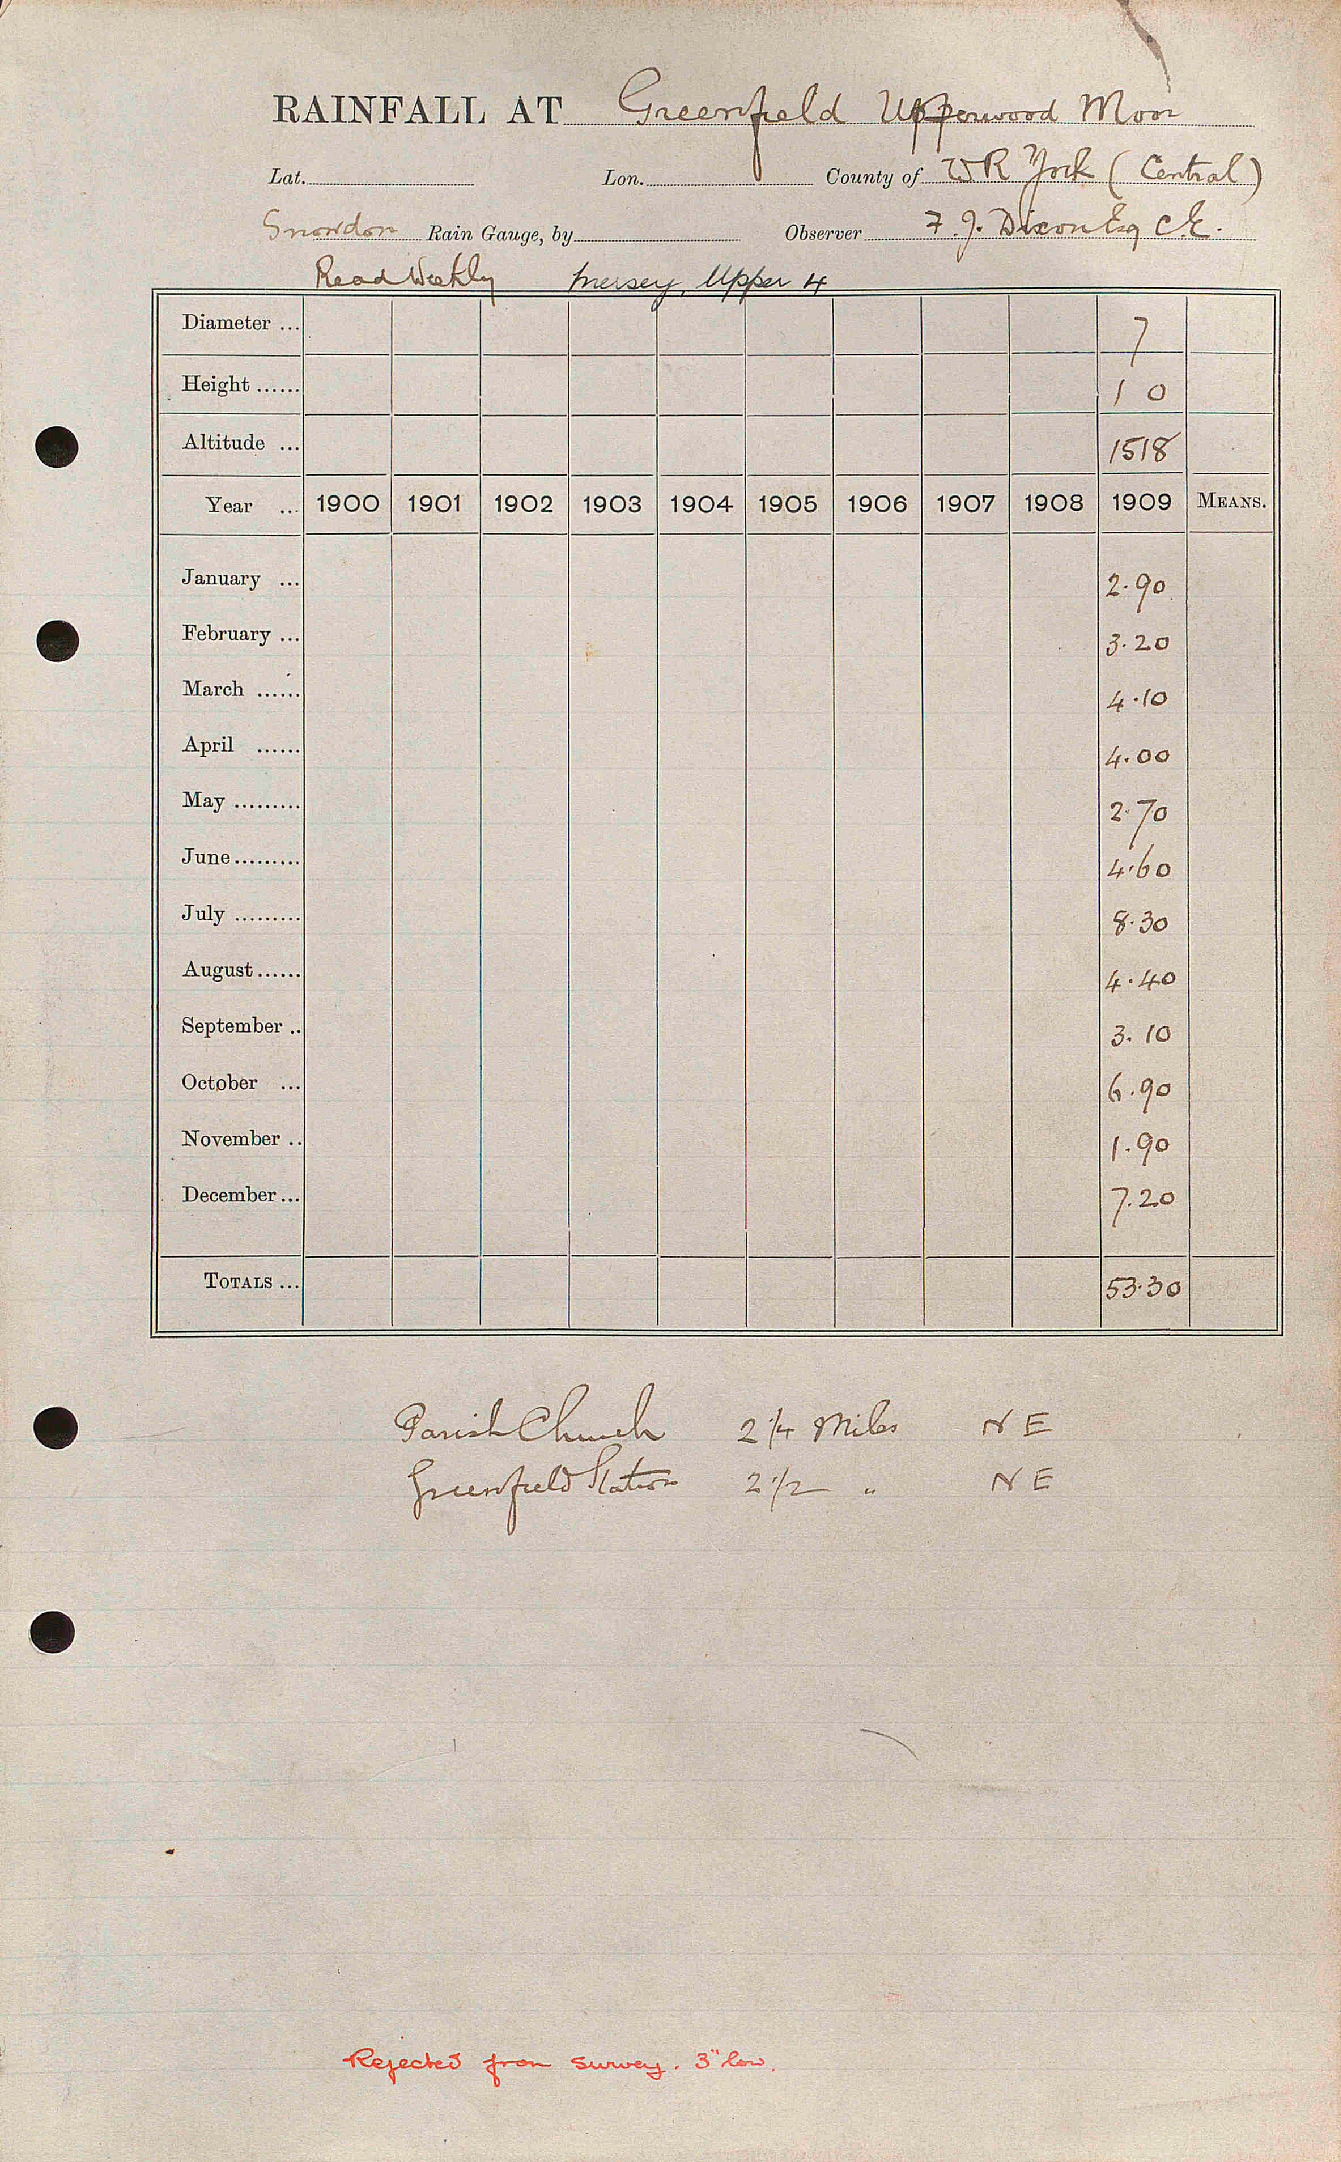 RAINFALL AT Greenfield Upperwood Moor
Lat. Lon. County of W R York (Central)
Snowdon Rain Gauge, by Observer F. J. Dixon Esq C.E.
Read Weekly Mersey, Upper 4
Diameter ... 7
Height ...... 1 0
Altitude ... 1518
Year ... 1900 1901 1902 1903 1904 1905 1906 1907 1908 1909 MEANS.
January ... 2.90
February ... 3.20
March ...... 4.10
April ...... 4.00
May ......... 2.70
June ......... 4.60
July ......... 8.30
August ...... 4.40
September .. 3.10
October ... 6.90
November .. 1.90
December ... 7.20
TOTALS ... 53.30
Parish Church 2 1/4 Miles N E
Greenfield Station 2 1/2 " N E
Rejected from survey. 3" low.